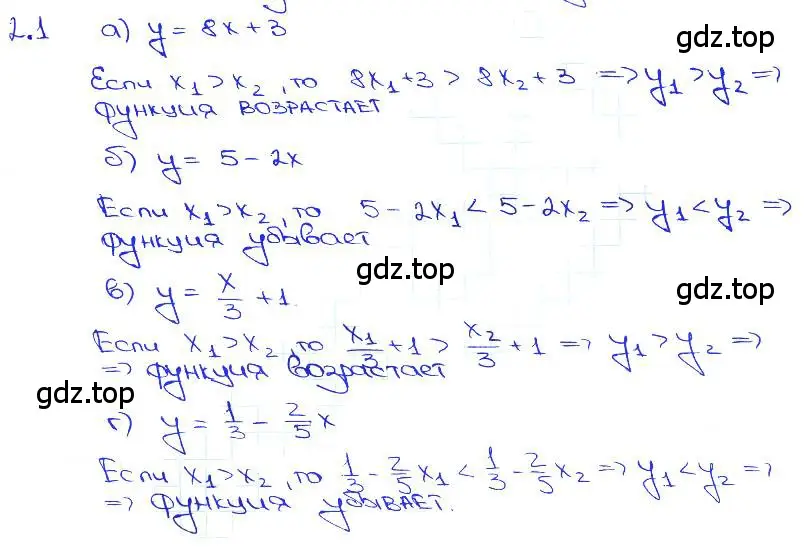 2.1 а) y = 8x + 3
gdz.top
Если x₁ > x₂, то 8x₁ + 3 > 8x₂ + 3 => y₁ > y₂ =>
функция ВОЗРАСТАЕТ
б) y = 5 - 2x
Если x₁ > x₂, то 5 - 2x₁ < 5 - 2x₂ => y₁ < y₂ =>
функция убывает
gdz.top
в) y = x/3 + 1.
gdz.top
Если x₁ > x₂, то x₁/3 + 1 > x₂/3 + 1 => y₁ > y₂ =>
=> функция возрастает
gdz.top
г) y = 1/3 - 2/5 x
Если x₁ > x₂, то 1/3 - 2/5 x₁ < 1/3 - 2/5 x₂ => y₁ < y₂ =>
=> функция убывает.